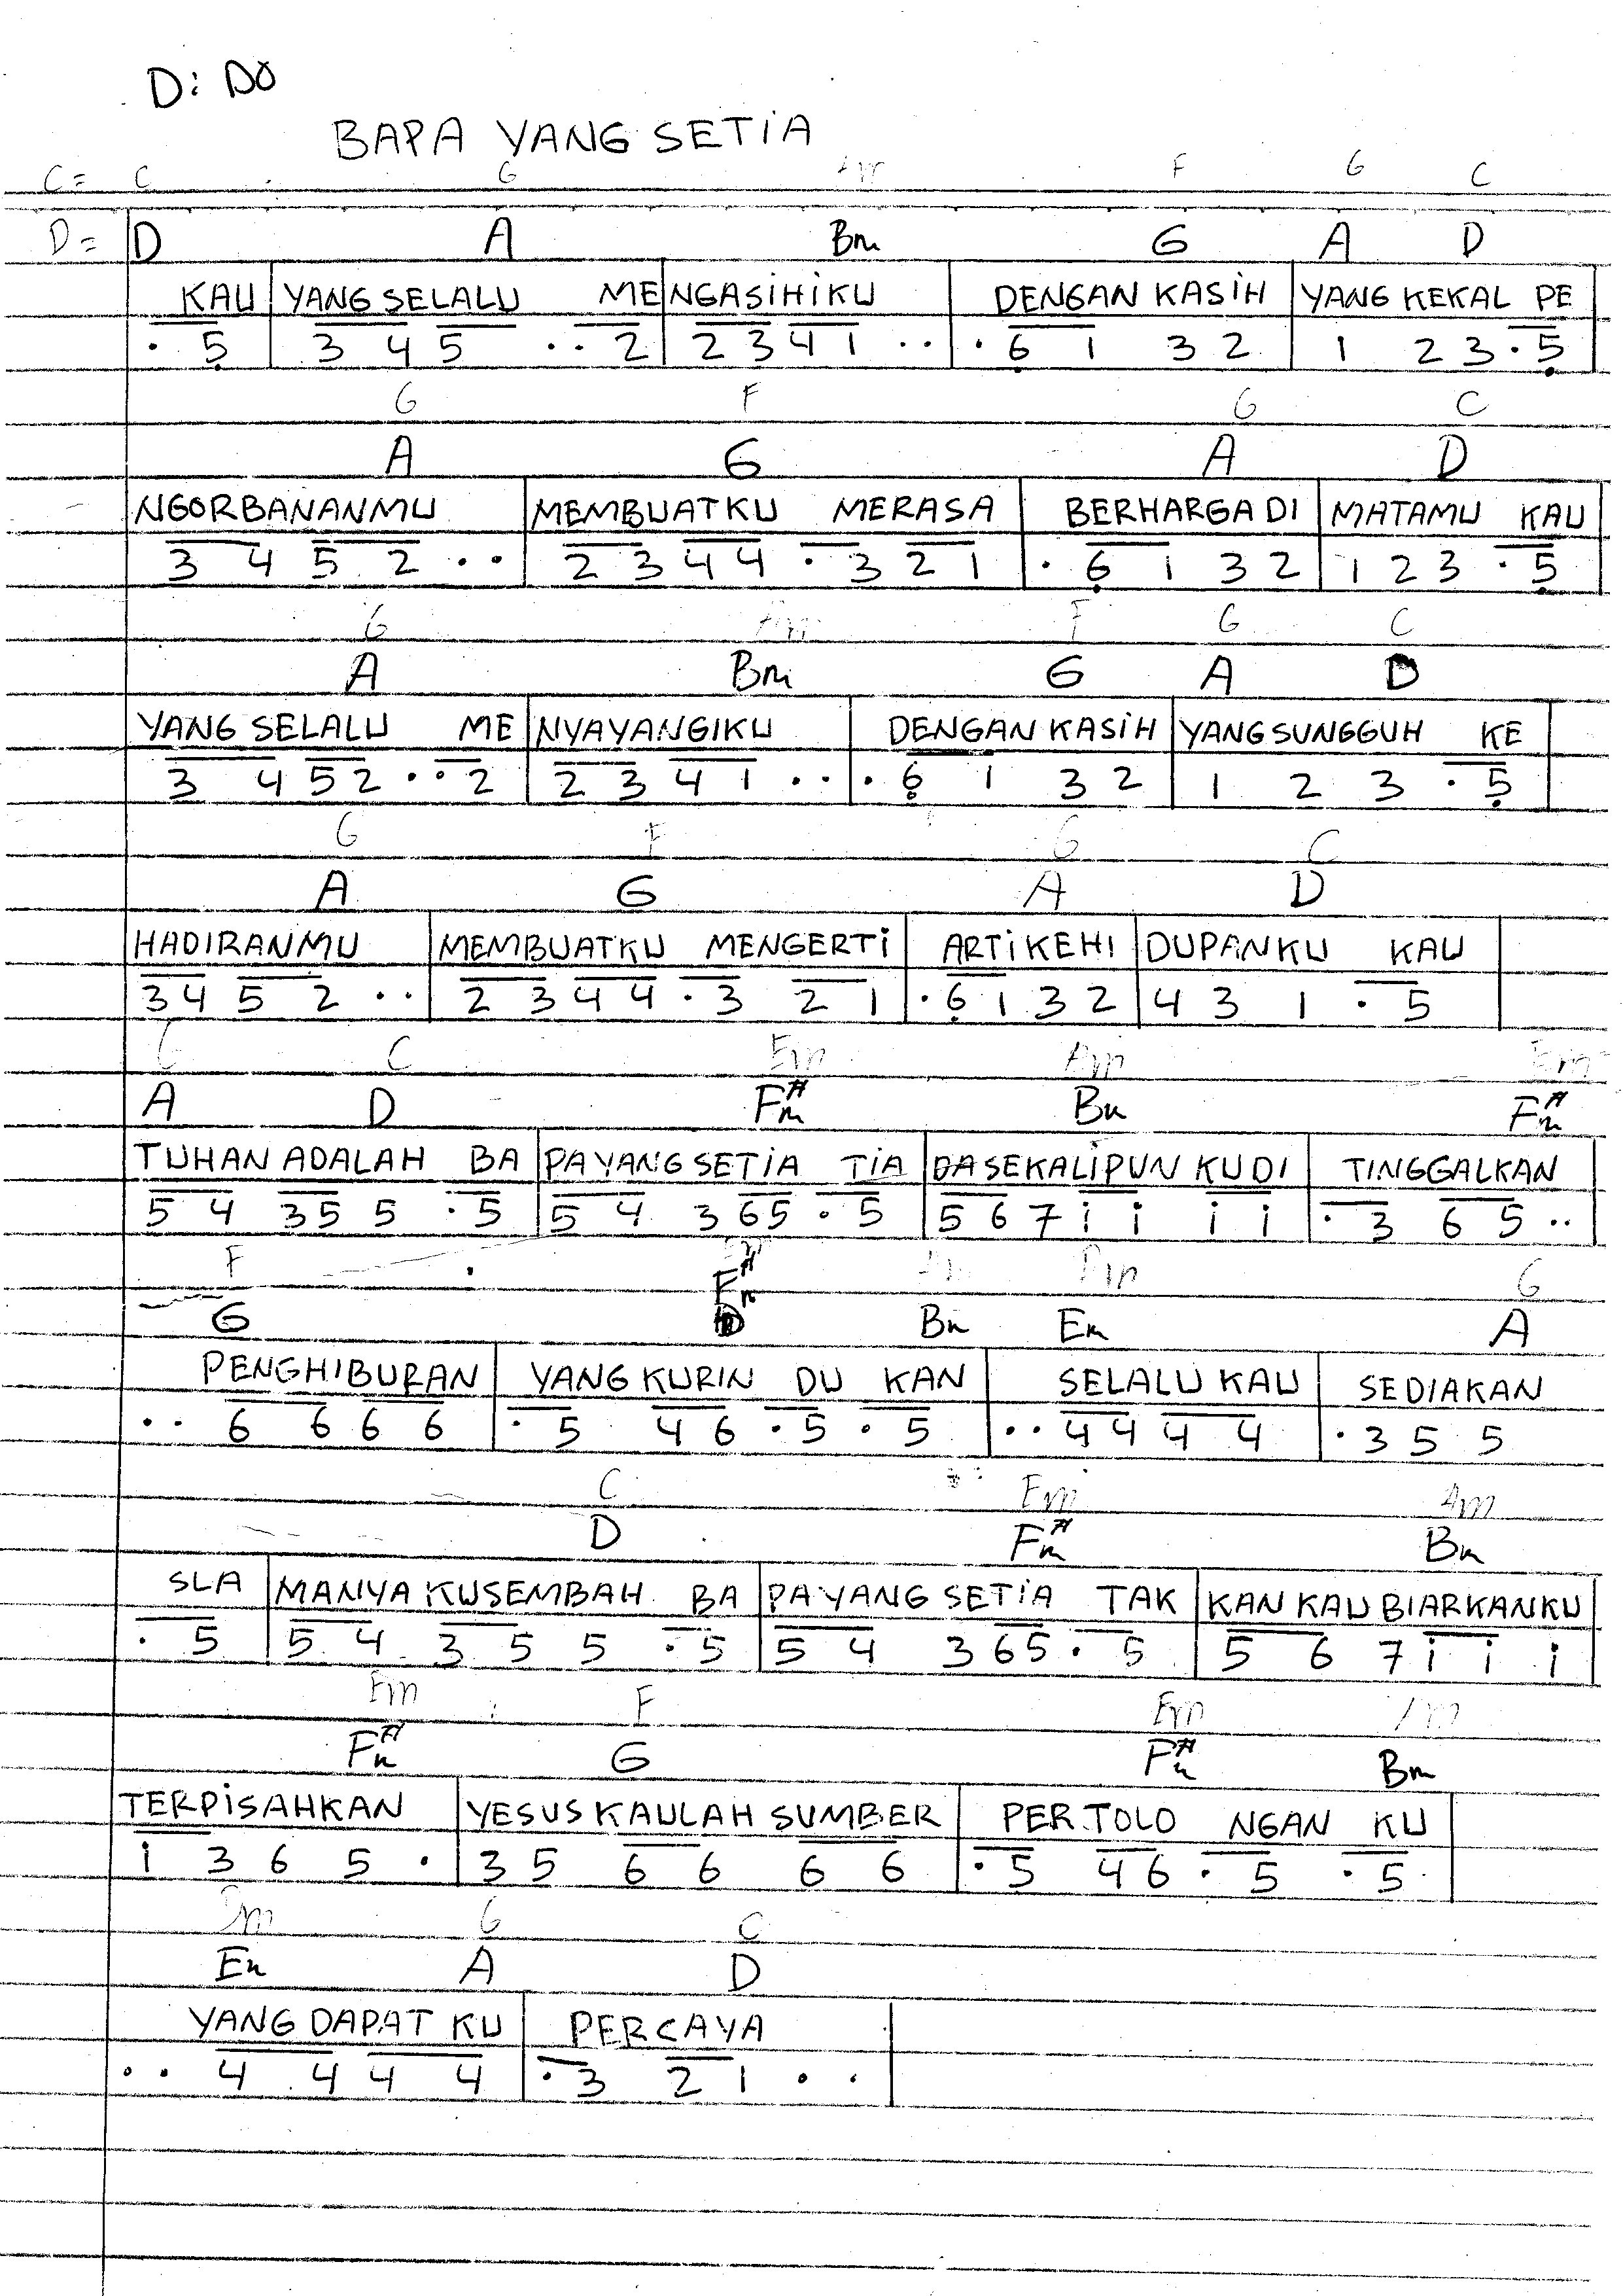 D: DO
BAPA YANG SETIA
C= C G Am F G C
D= D A Bm G A D
KAU | YANG SELALU ME | NGASIHIKU | DENGAN KASIH | YANG KEKAL PE |
. 5̣ | 3 4 5 . . 2 | 2 3 4 1 . . | . 6̣ 1 3 2 | 1 2 3 . 5̣ |
G F G C
A G A D
NGORBANANMU | MEMBUATKU MERASA | BERHARGA DI | MATAMU KAU |
3 4 5 2 . . | 2 3 4 4 . 3 2 1 | . 6̣ 1 3 2 | 1 2 3 . 5̣ |
G Am F G C
A Bm G A D
YANG SELALU ME | NYAYANGIKU | DENGAN KASIH | YANG SUNGGUH KE |
3 4 5 2 . . 2 | 2 3 4 1 . . | . 6̣ 1 3 2 | 1 2 3 . 5̣ |
G F G C
A G A D
HADIRANMU | MEMBUATKU MENGERTI | ARTI KEHI | DUPANKU KAU |
3 4 5 2 . . | 2 3 4 4 . 3 2 1 | . 6̣ 1 3 2 | 4 3 1 . 5 |
G C Em Am Em
A D F#m Bm F#m
TUHAN ADALAH BA | PA YANG SETIA TIA | DA SEKALIPUN KU DI | TINGGALKAN |
5 4 3 5 5 . 5 | 5 4 3 6 5 . 5 | 5 6 7 i i i i | . 3 6 5 . . |
F Em Am Dm G
G F#m Bm Em A
PENGHIBURAN | YANG KURIN DU KAN | SELALU KAU | SEDIAKAN
. . 6 6 6 6 | . 5 4 6 . 5 . 5 | . . 4 4 4 4 | . 3 5 5
C Em Am
D F#m Bm
SLA | MANYA KUSEMBAH BA | PA YANG SETIA TAK | KAN KAU BIARKANKU |
. 5 | 5 4 3 5 5 . 5 | 5 4 3 6 5 . 5 | 5 6 7 i i i |
Em F Em Am
F#m G F#m Bm
TERPISAHKAN | YESUS KAULAH SUMBER | PER TOLO NGAN KU |
i 3 6 5 . | 3 5 6 6 6 6 | . 5 4 6 . 5 . 5 |
Dm G C
Em A D
YANG DAPAT KU | PERCAYA |
. . 4 4 4 4 | . 3 2 1 . . |